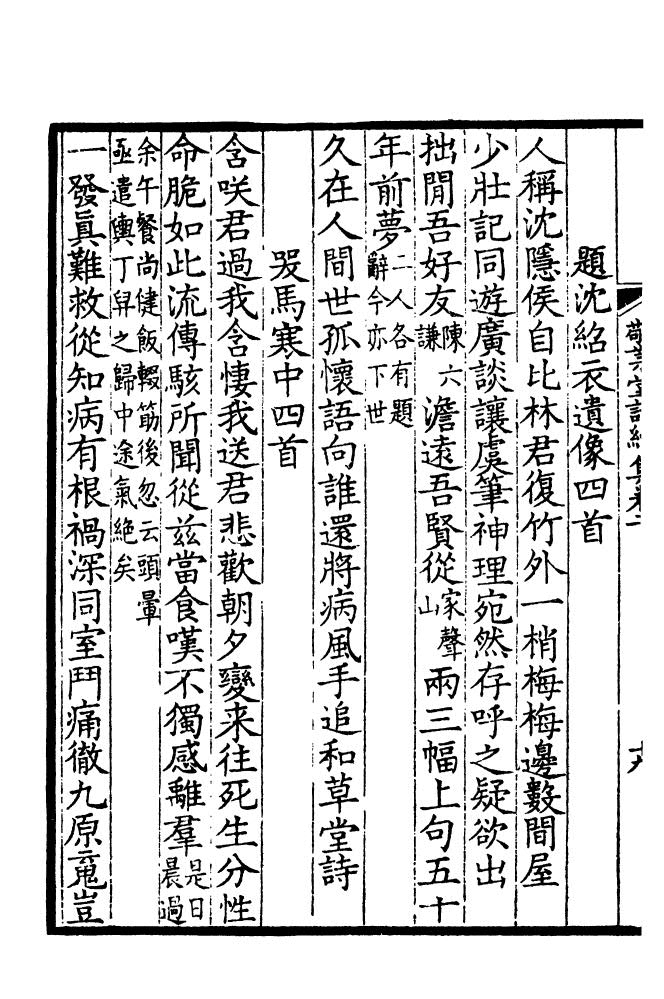 題沈紹衣遺像四首
人稱沈隱侯自比林君復竹外一梢梅梅邊數間屋
少壯記同遊廣談讓虞筆神理宛然存呼之疑欲出
拙閒吾好友陳六謙澹遠吾賢從家聲山兩三幅上句五十
年前夢二人各有題辭今亦下世
久在人間世孤懷語向誰還將病風手追和草堂詩
哭馬寒中四首
含咲君過我含悽我送君悲歡朝夕變来往死生分性
命脆如此流傳駭所聞從兹當食嘆不獨感離羣是日晨過
余午餐尚健飯輟筯後忽云頭暈
亟遣輿丁舁之歸中途氣絕矣
一發眞難救從知病有根禍深同室鬥痛徹九原寃豈